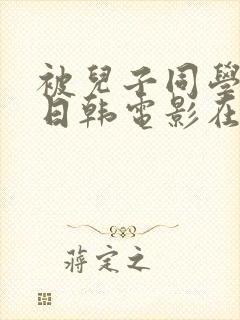 被兒子同學
日韩電影在
蔣定之